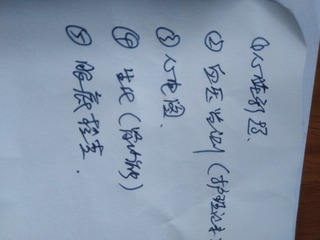 ①心脏彩超.
②血压监测(护理记录
③心电图
④生化(
⑤眼底检查.